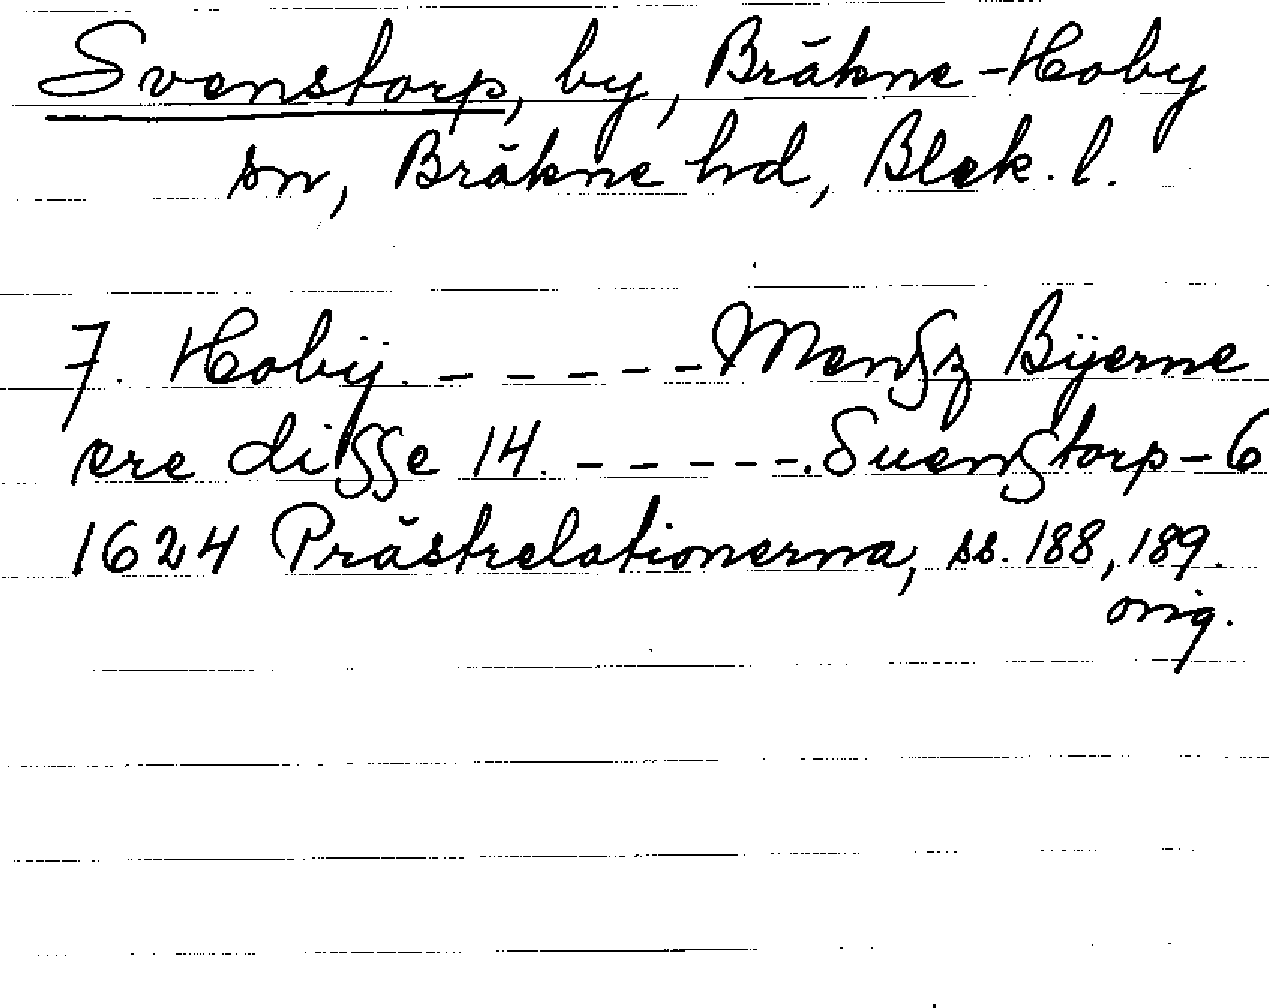 Svenstorp, by, Bräkne-Hoby
sn, Bräkne hd, Blek. l.
7. Hobÿ. - - - - - Mengsz Bÿerne
ere disse 14. - - - - -. Suenstorp - 6
1624 Prästrelationerna, ss. 188, 189.
orig.